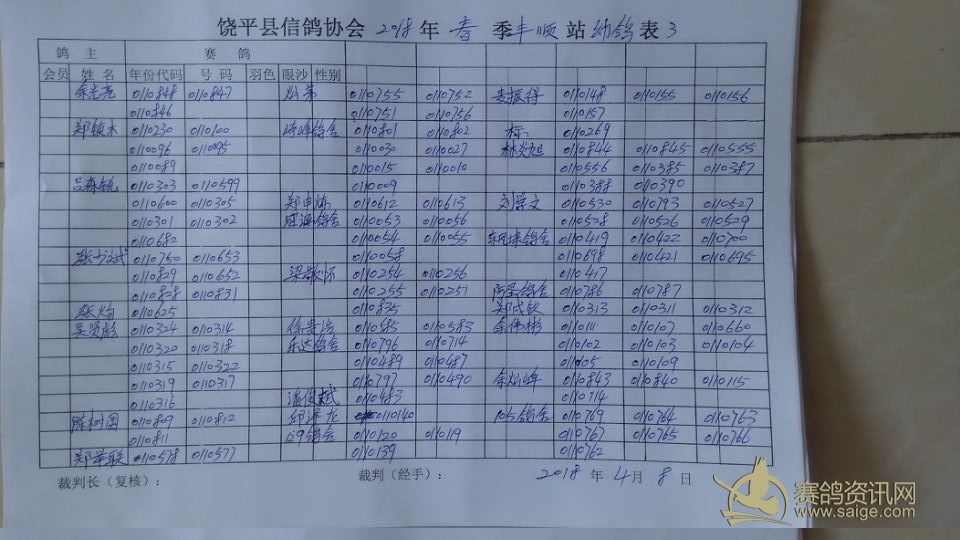 饶平县信鸽协会 2018 年 春 季丰顺 站 幼鸽 表 3
鸽 主 赛 鸽
会员 姓 名 年份代码 号 码 羽色 眼沙 性别
余光亮 0110848 0110847 0110755 0110752 0110148 0110155 0110156
0110846 0110751 0110756 0110157
郑镇木 0110230 0110100 0110801 0110802 0110269
0110096 0110095 0110030 0110027 0110844 0110845 0110555
0110089 0110015 0110010 0110556 0110385 0110387
0110303 0110599 0110009 0110388 0110390
0110600 0110305 0110612 0110613 刘学文 0110530 0110793 0110527
0110301 0110302 0110053 0110056 0110528 0110526 0110529
0110682 0110054 0110055 0110419 0110422 0110700
张少斌 0110750 0110653 0110058 0110698 0110421 0110695
0110829 0110652 0110254 0110256 0110417
0110828 0110831 0110255 0110251 0110786 0110787
0110625 0110835 郑成钦 0110313 0110311 0110312
吴贤彪 0110324 0110314 0110685 0110583 余伟彬 0110107 0110660
0110320 0110318 乐达鸽舍 0110796 0110714 0110102 0110103 0110104
0110315 0110322 0110489 0110487 0110109
0110319 0110317 0110797 0110490 余灿峰 0110843 0110840 0110115
0110316 潘俊斌 0110483 0110114
陈树国 0110809 0110812 0110140 105鸽舍 0110769 0110764 0110763
0110811 69鸽舍 0110120 0110119 0110767 0110765 0110766
郑举联 0110578 0110577 0110139 0110762
裁判长（复核）： 裁判（经手）： 2018 年 4月 8 日
赛鸽资讯网
www.saige.com